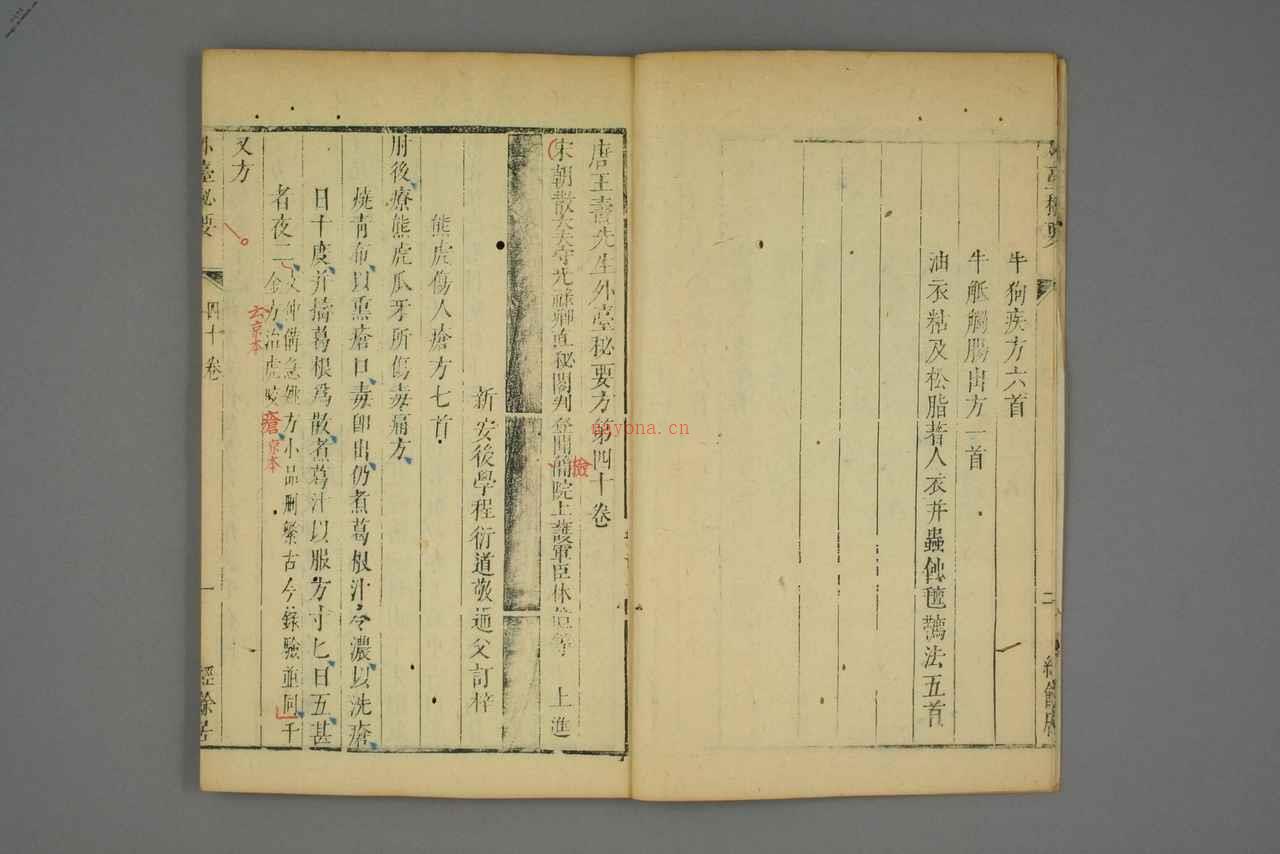 牛狗疾方六首
牛觝觸腸出方一首
油衣粘及松脂着人衣并蟲蝕氊
法五首
二
唐王燾先生外臺秘要方第四十卷
宋朝散大夫守光祿卿直秘閣判登聞簡院上護軍臣林億等 上進
檢
新安後學程衍道敬通父訂梓
熊虎傷人瘡方七首
肘後療熊虎爪牙所傷毒痛方
燒青布以熏瘡口毒卽出仍煮葛根汁令濃以洗瘡
日十度并擣葛根爲散煮葛汁以服方寸匕日五甚
者夜二
文仲備急姚方小品刪繁古今錄驗並同千
金方治虎
瘡京本
云京本
又方
外臺秘要
四十卷
一
經餘居
naybna.cn